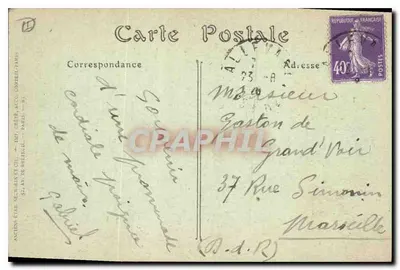 Carte Postale
Correspondance
Adresse
Souvenir
d'une promenade
cordiale poignée
de mains.
Gabriel
Monsieur
Gaston de
Grand'Voir
37 Rue Simonin
Marseille
(B-d-R)
REPUBLIQUE FRANÇAISE
40c
POSTES
ALLEVARD
23-8
CPARHIL